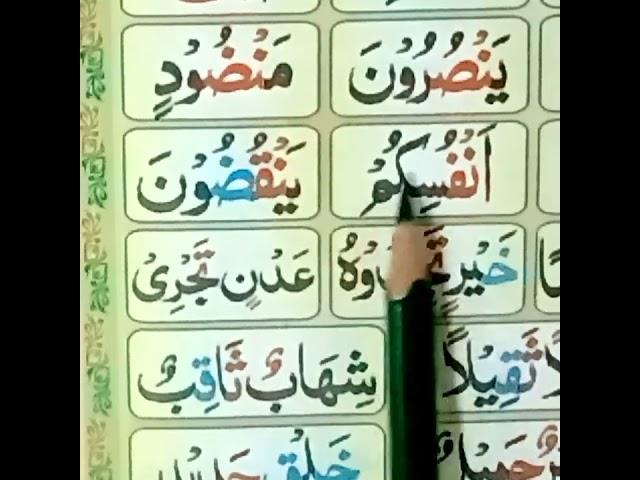 يَنْصُرُوْنَ مَنْضُوْدٍ
اَنْفُسِكُمْ يَنْقُضُوْنَ
خَيْرٍ عَدْنٍ تَجْرِىْ
ثَقِيْلًا شِهَابٌ ثَاقِبٌ